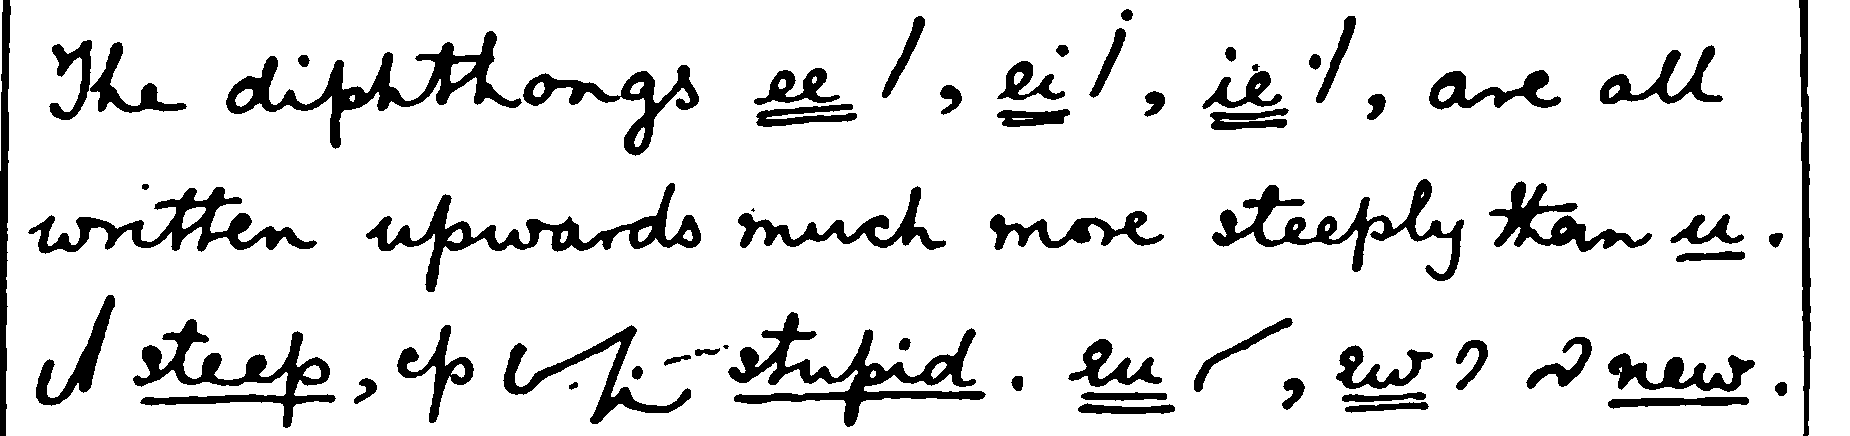 The diphthongs ee /, ei /, ie /, are all
written upwards much more steeply than u.
steep, cp stupid. eu, ew new.